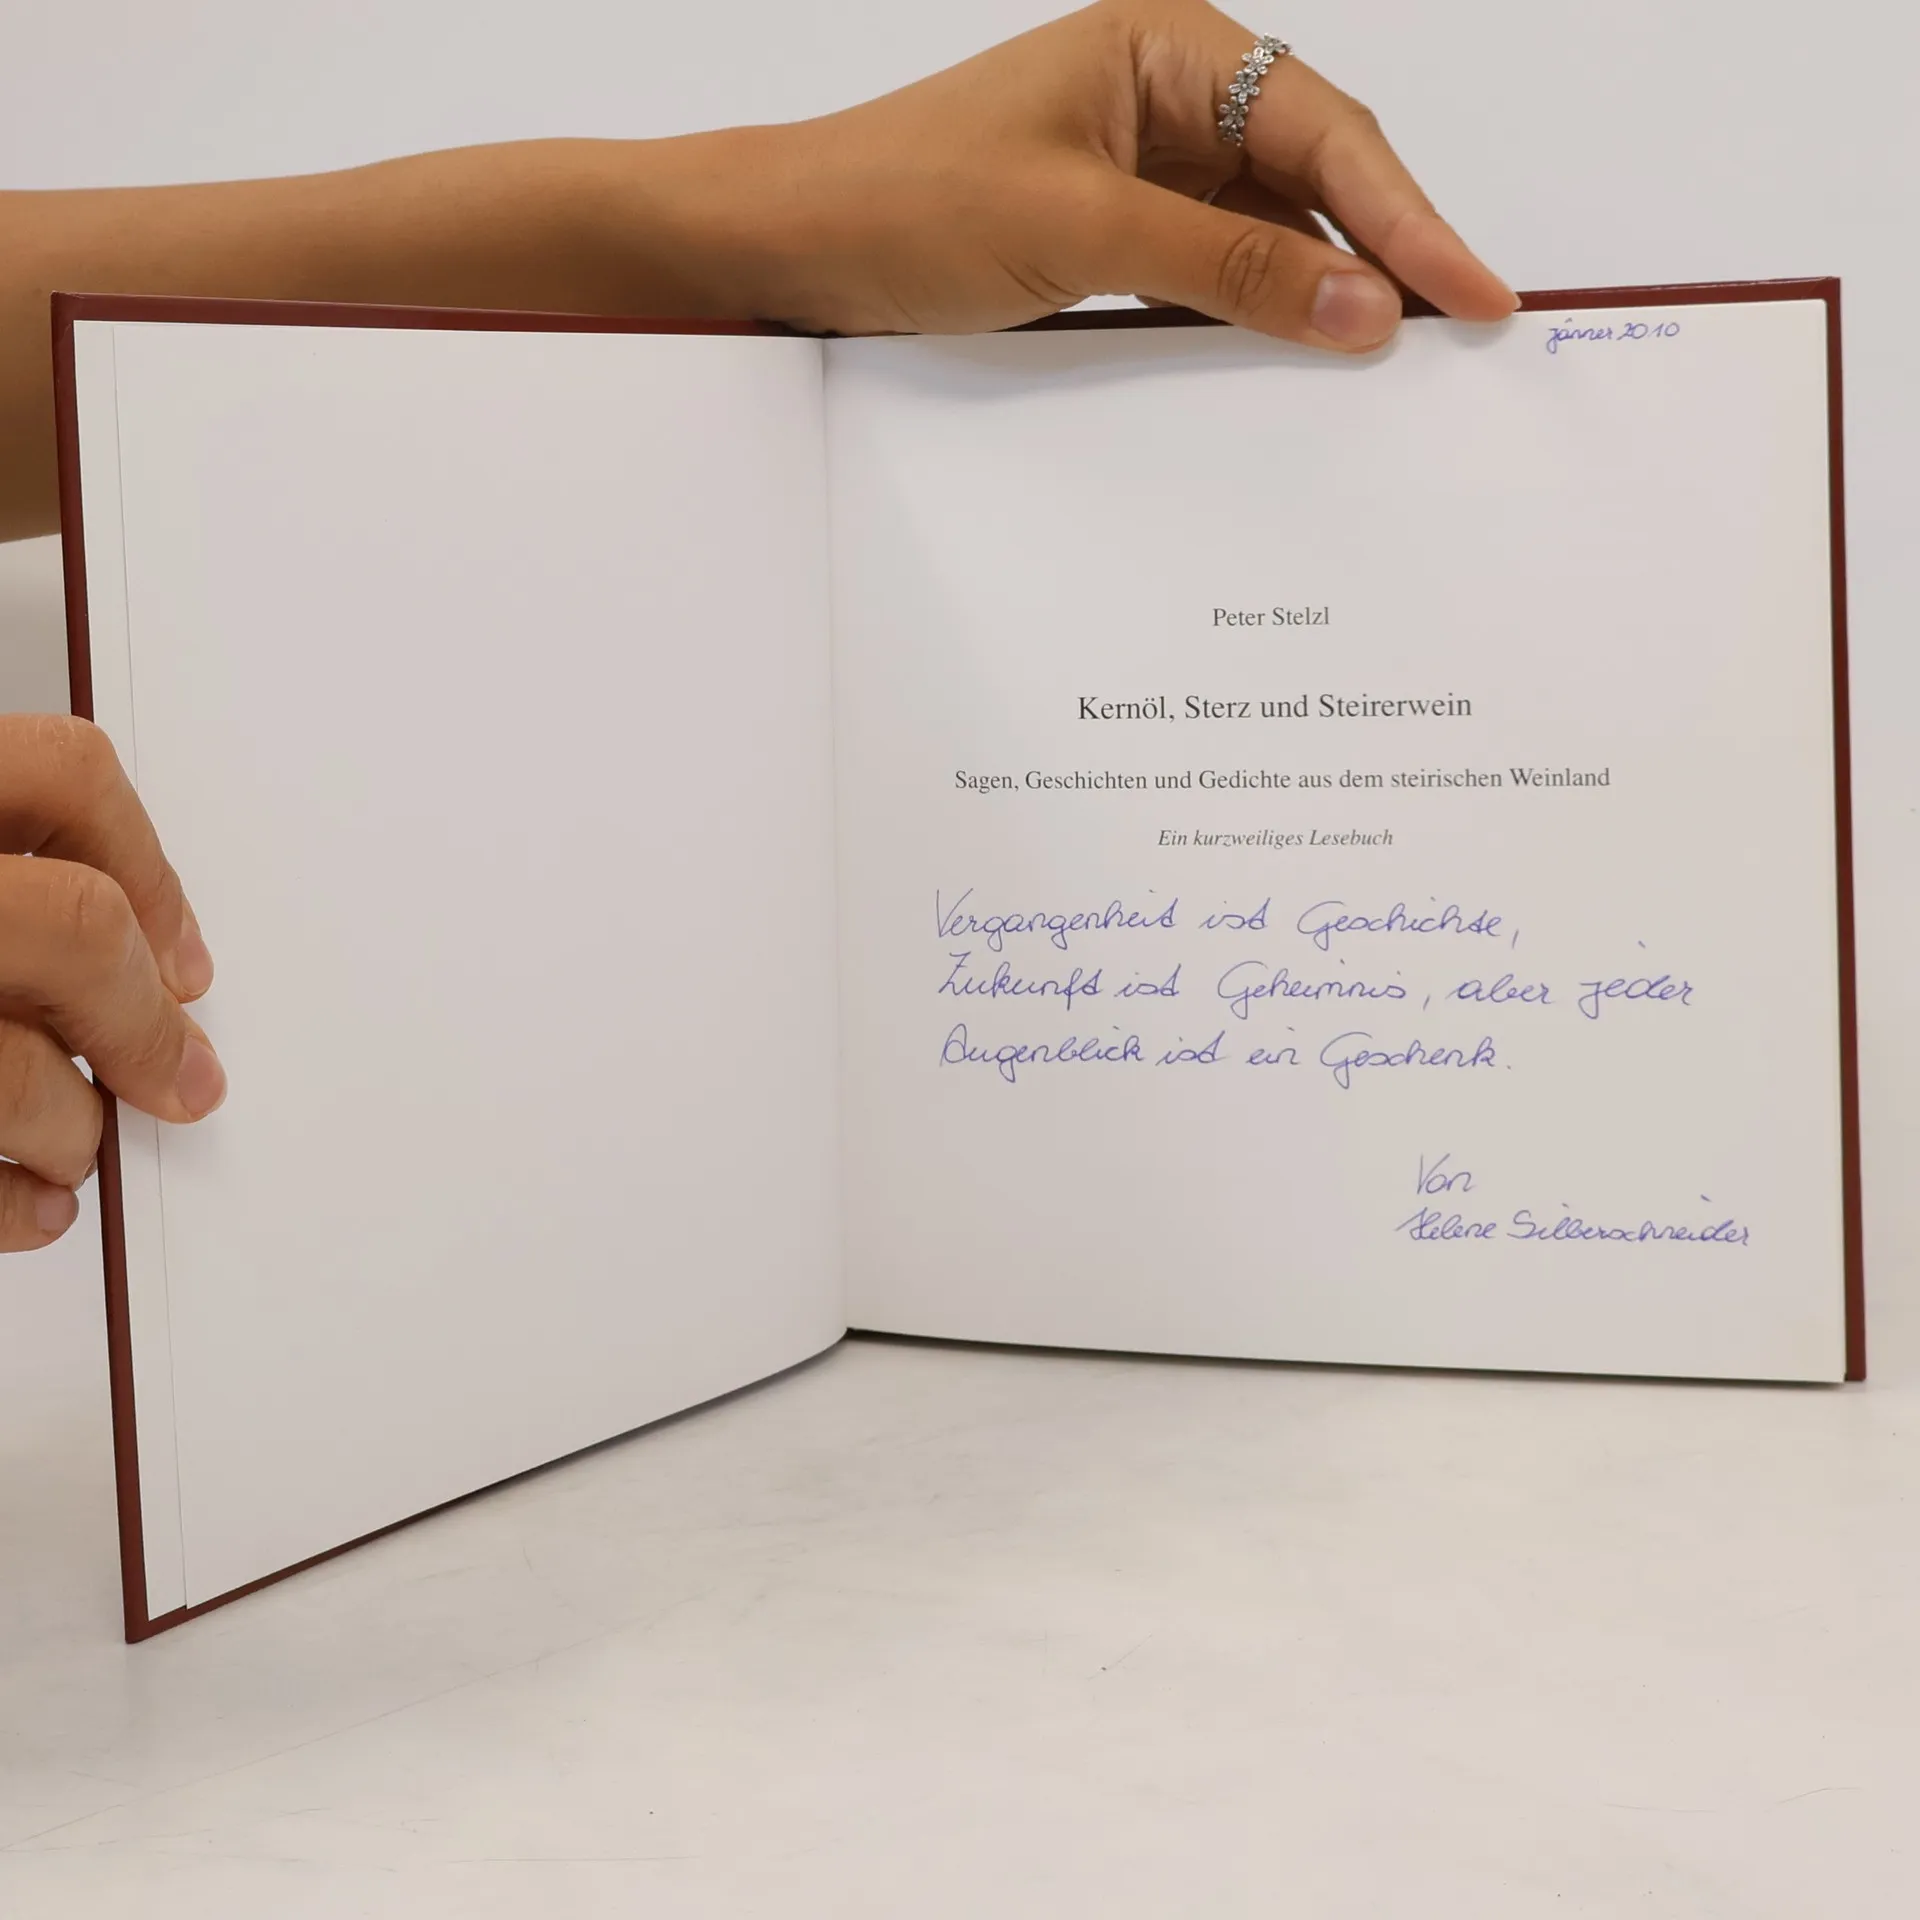 Jänner 2010
Peter Stelzl
Kernöl, Sterz und Steirerwein
Sagen, Geschichten und Gedichte aus dem steirischen Weinland
Ein kurzweiliges Lesebuch
Vergangenheit ist Geschichte,
Zukunft ist Geheimnis, aber jeder
Augenblick ist ein Geschenk.
Von
Helene Silberschneider